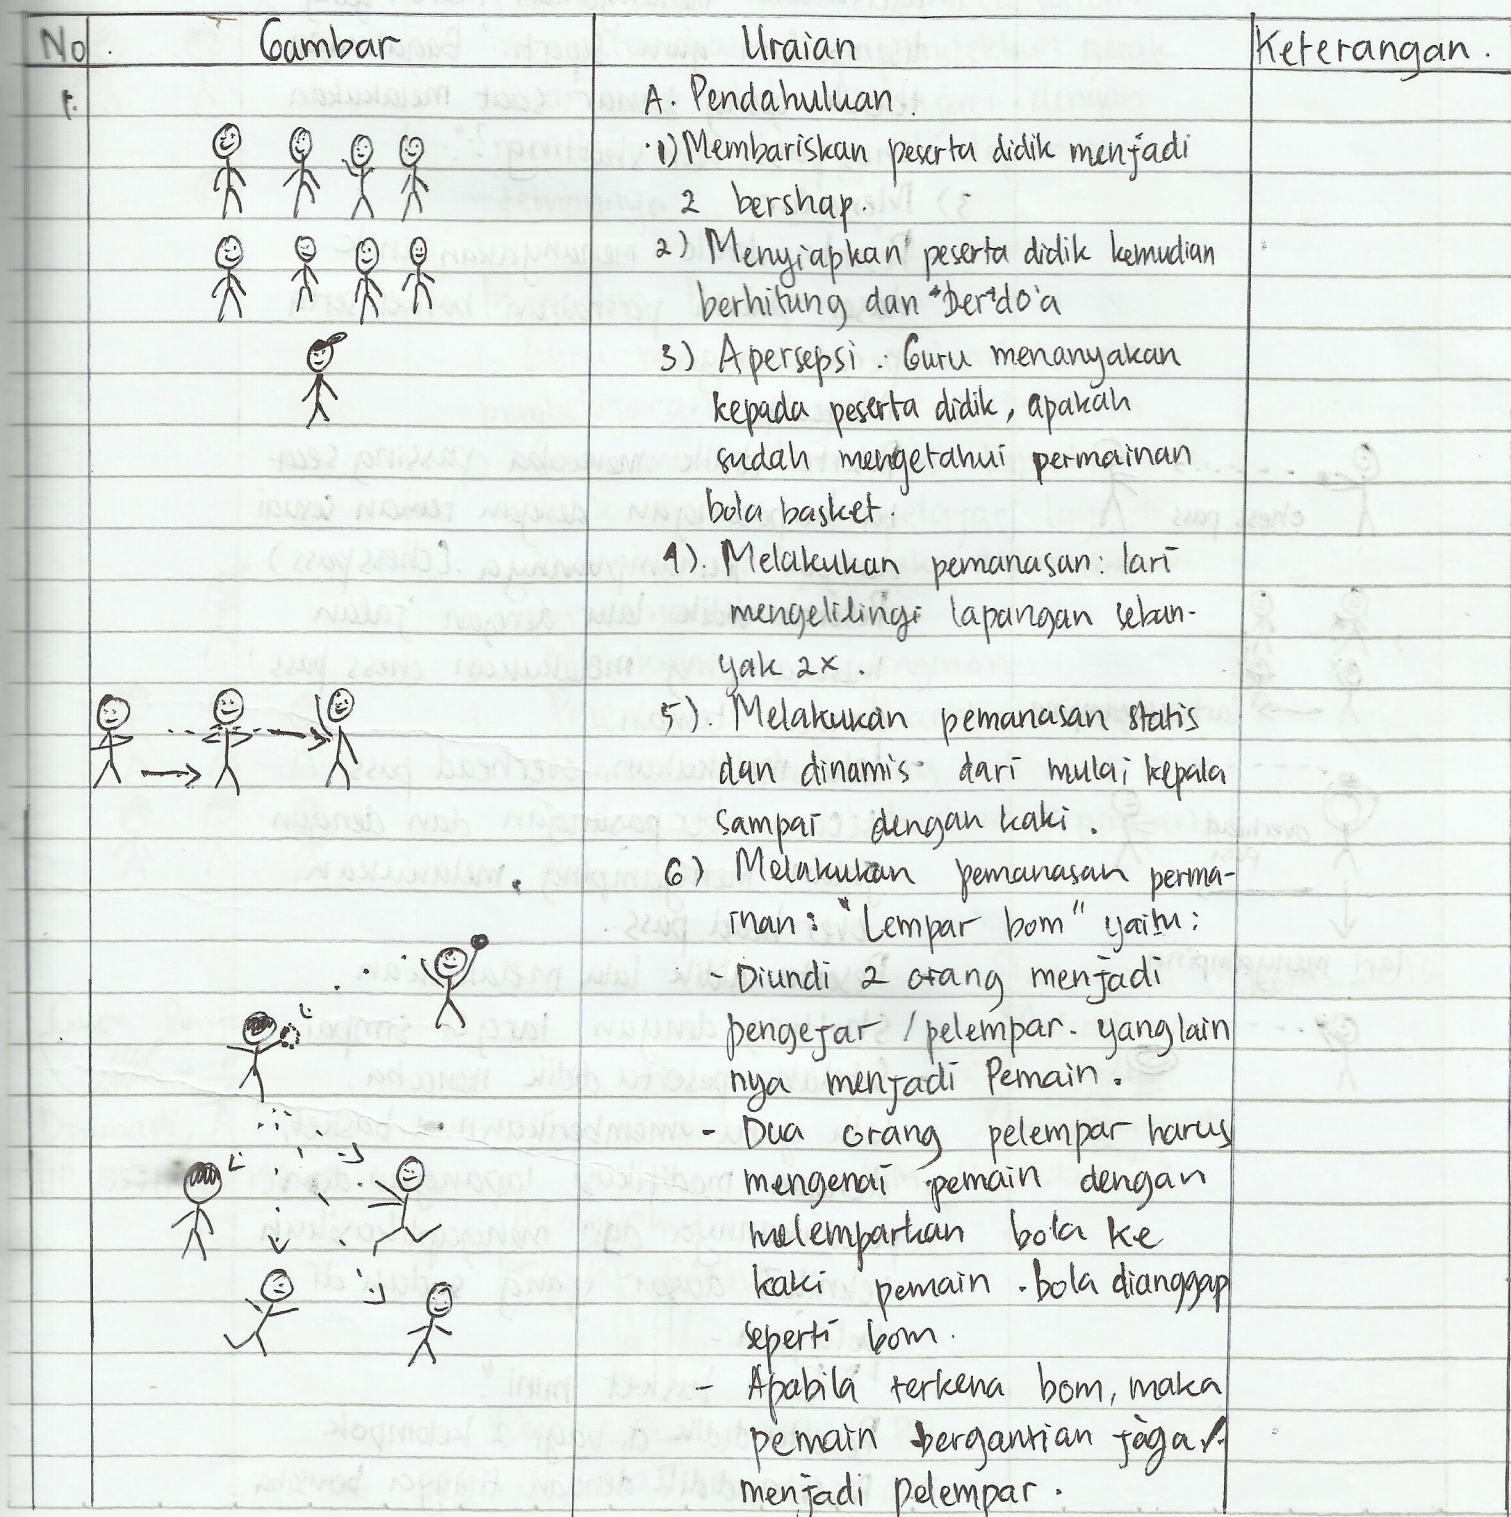 No. Gambar Uraian Keterangan.
1. A. Pendahuluan.
1) Membariskan peserta didik menjadi
2 bershap.
2) Menyiapkan peserta didik kemudian
berhitung dan berdo'a
3) Apersepsi. Guru menanyakan
kepada peserta didik, apakah
sudah mengetahui permainan
bola basket.
4). Melakukan pemanasan: lari
mengelilingi lapangan seban-
yak 2x.
5). Melakukan pemanasan statis
dan dinamis dari mulai kepala
sampai dengan kaki.
6) Melakukan pemanasan perma-
inan: "Lempar bom" yaitu:
- Diundi 2 orang menjadi
pengejar / pelempar. yang lain
nya menjadi Pemain.
- Dua orang pelempar harus
mengenai pemain dengan
melemparkan bola ke
kaki pemain. bola dianggap
seperti bom.
- Apabila terkena bom, maka
pemain bergantian jaga
menjadi pelempar.